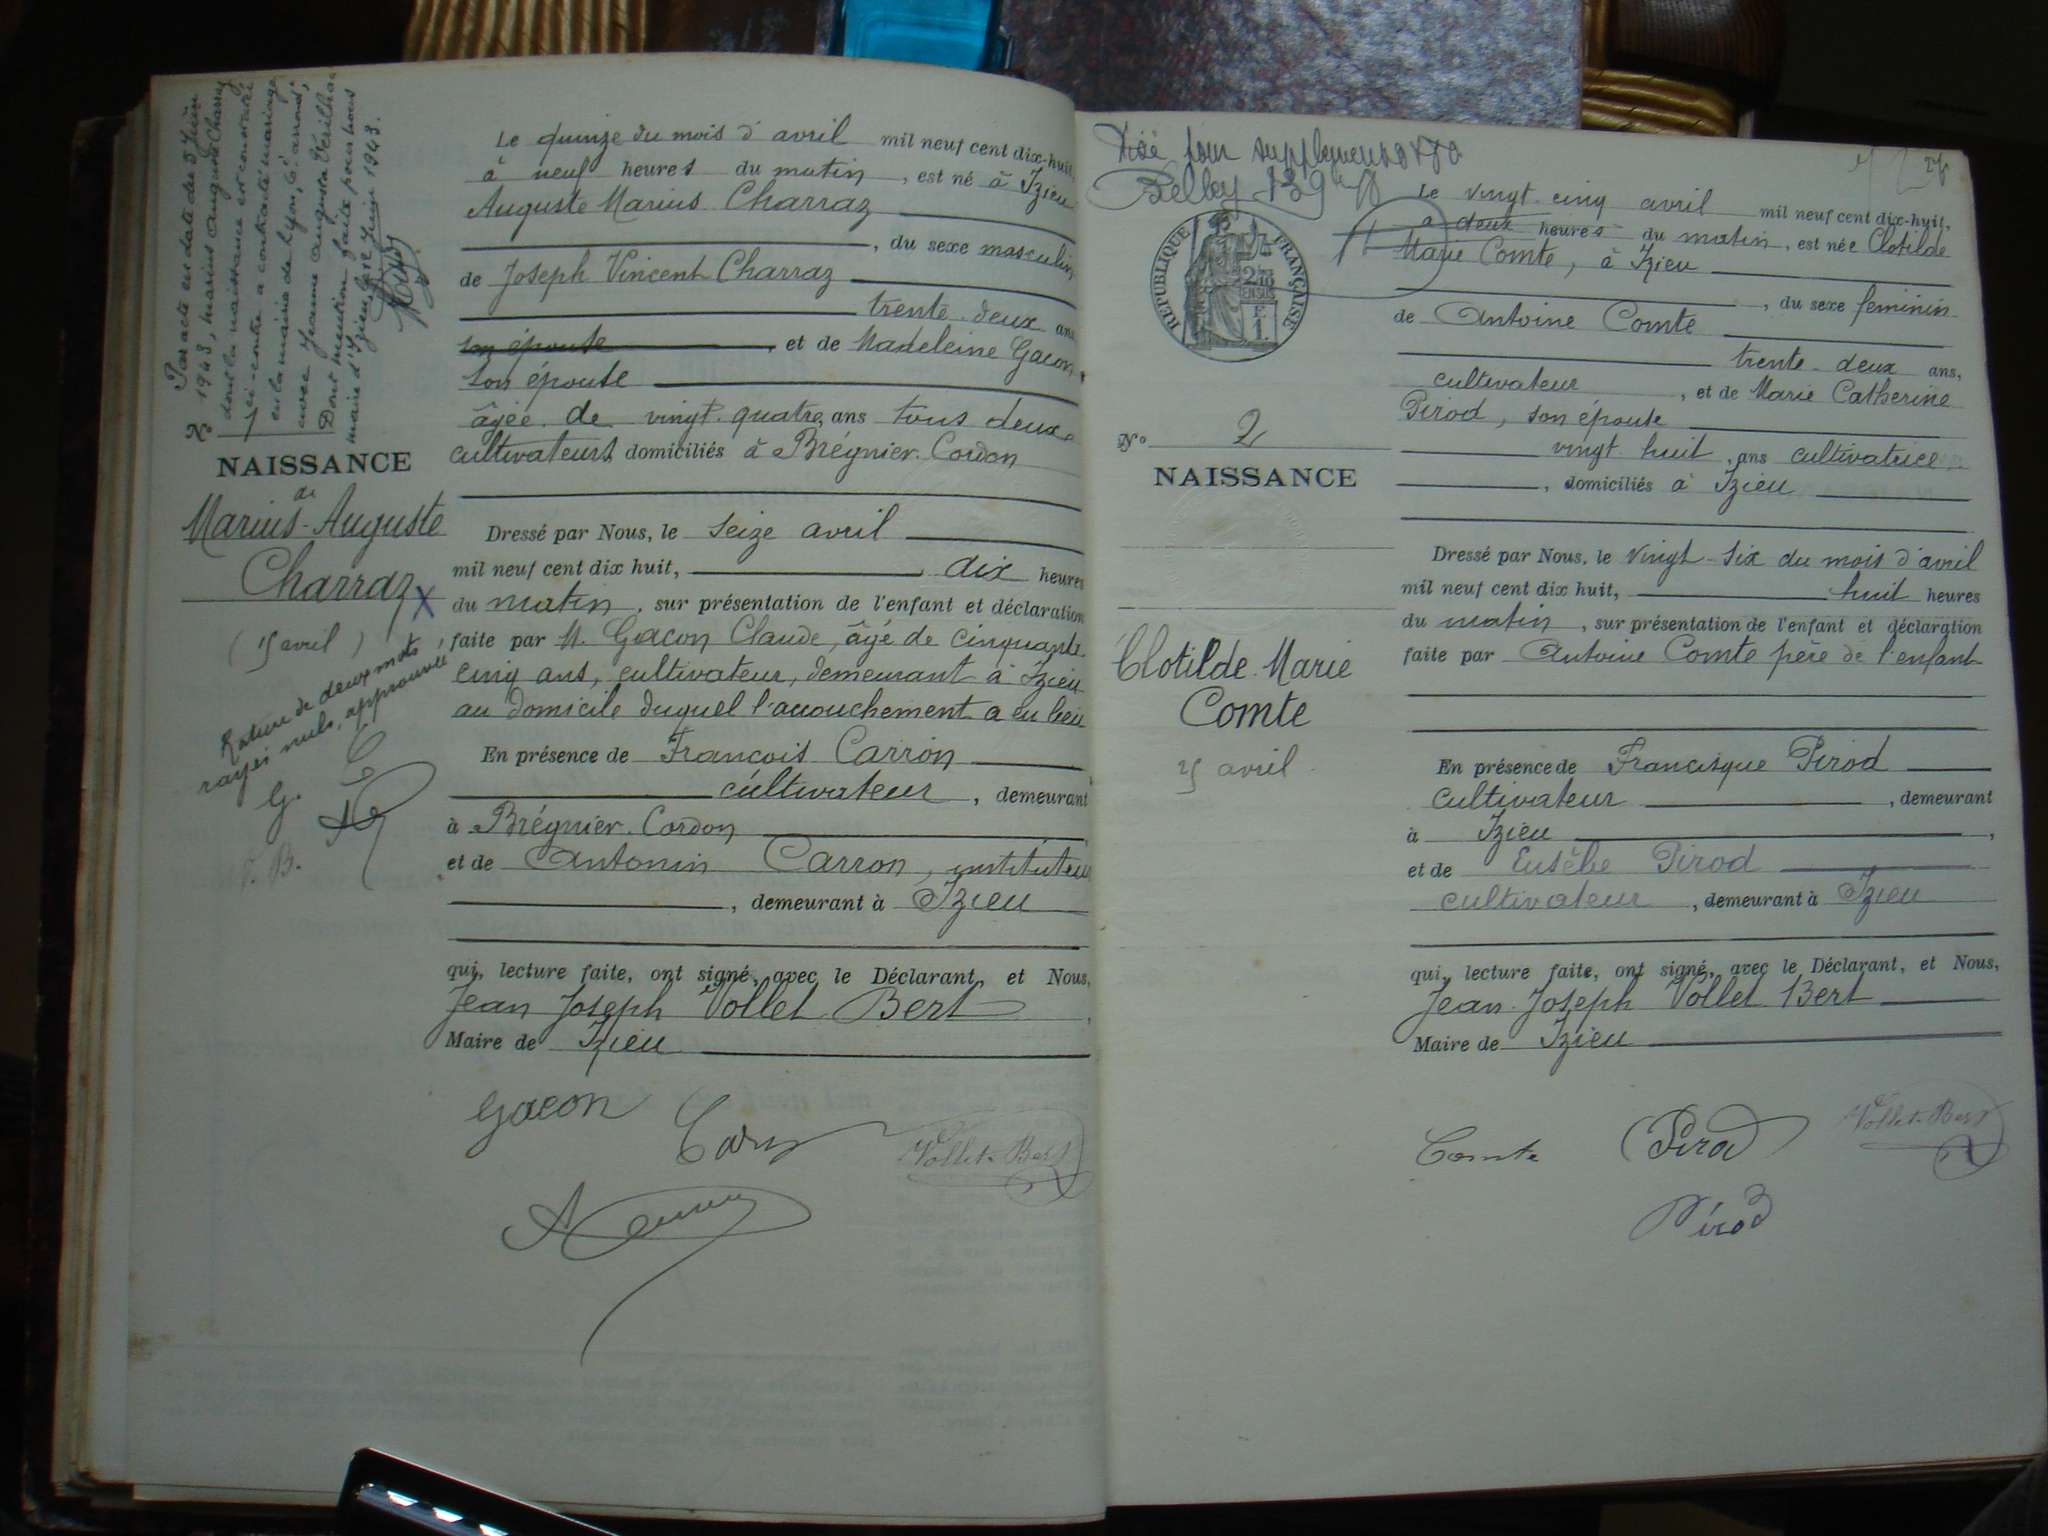 Par acte en date du 5 Juin
1943, Marius Auguste Charraz
dont la naissance est constatée
ci-contre a contracté mariage
en la mairie de Lyon, 6e arrondt
avec Jeanne Augusta
Dont mention faite par nous
maire d'Izieu le Juin 1943.
NAISSANCE
de
Marius-Auguste
Charraz X
(15 avril)
Rature de deux mots
rayés nuls, approuvée
G. C
V. B.
Le quinze du mois d'avril mil neuf cent dix-huit,
à neuf heures du matin, est né à Izieu
Auguste Marius Charraz
, du sexe masculin,
de Joseph Vincent Charraz
trente-deux ans
son épouse, et de Madeleine Gacon,
son épouse
âgée de vingt-quatre ans tous deux
cultivateurs, domiciliés à Brégnier-Cordon
Dressé par Nous, le seize avril
mil neuf cent dix huit, dix heures
du matin, sur présentation de l'enfant et déclaration
faite par M. Gacon Claude, âgé de cinquante
cinq ans, cultivateur, demeurant à Izieu
au domicile duquel l'accouchement a eu lieu
En présence de François Carron
cultivateur, demeurant
à Brégnier-Cordon
et de Antonin Carron, instituteur
, demeurant à Izieu
qui, lecture faite, ont signé, avec le Déclarant, et Nous,
Jean Joseph Vollet-Bert,
Maire de Izieu
Gacon
Vollet-Bert
Visé pour
Belley
RÉPUBLIQUE FRANÇAISE
No 2
NAISSANCE
Clotilde-Marie
Comte
25 avril
Le vingt-cinq avril mil neuf cent dix-huit,
à deux heures du matin, est née Clotilde
Marie Comte, à Izieu
, du sexe feminin
de Antoine Comte
trente-deux ans,
cultivateur, et de Marie Catherine
Pirod, son épouse
vingt-huit ans cultivatrice
, domiciliés à Izieu
Dressé par Nous, le vingt-six du mois d'avril
mil neuf cent dix huit, huit heures
du matin, sur présentation de l'enfant et déclaration
faite par Antoine Comte père de l'enfant
En présence de Francisque Pirod
cultivateur, demeurant
à Izieu,
et de Eusèbe Pirod
cultivateur, demeurant à Izieu
qui, lecture faite, ont signé, avec le Déclarant, et Nous,
Jean-Joseph Vollet-Bert
Maire de Izieu
Comte Pirod Vollet-Bert
Pirod